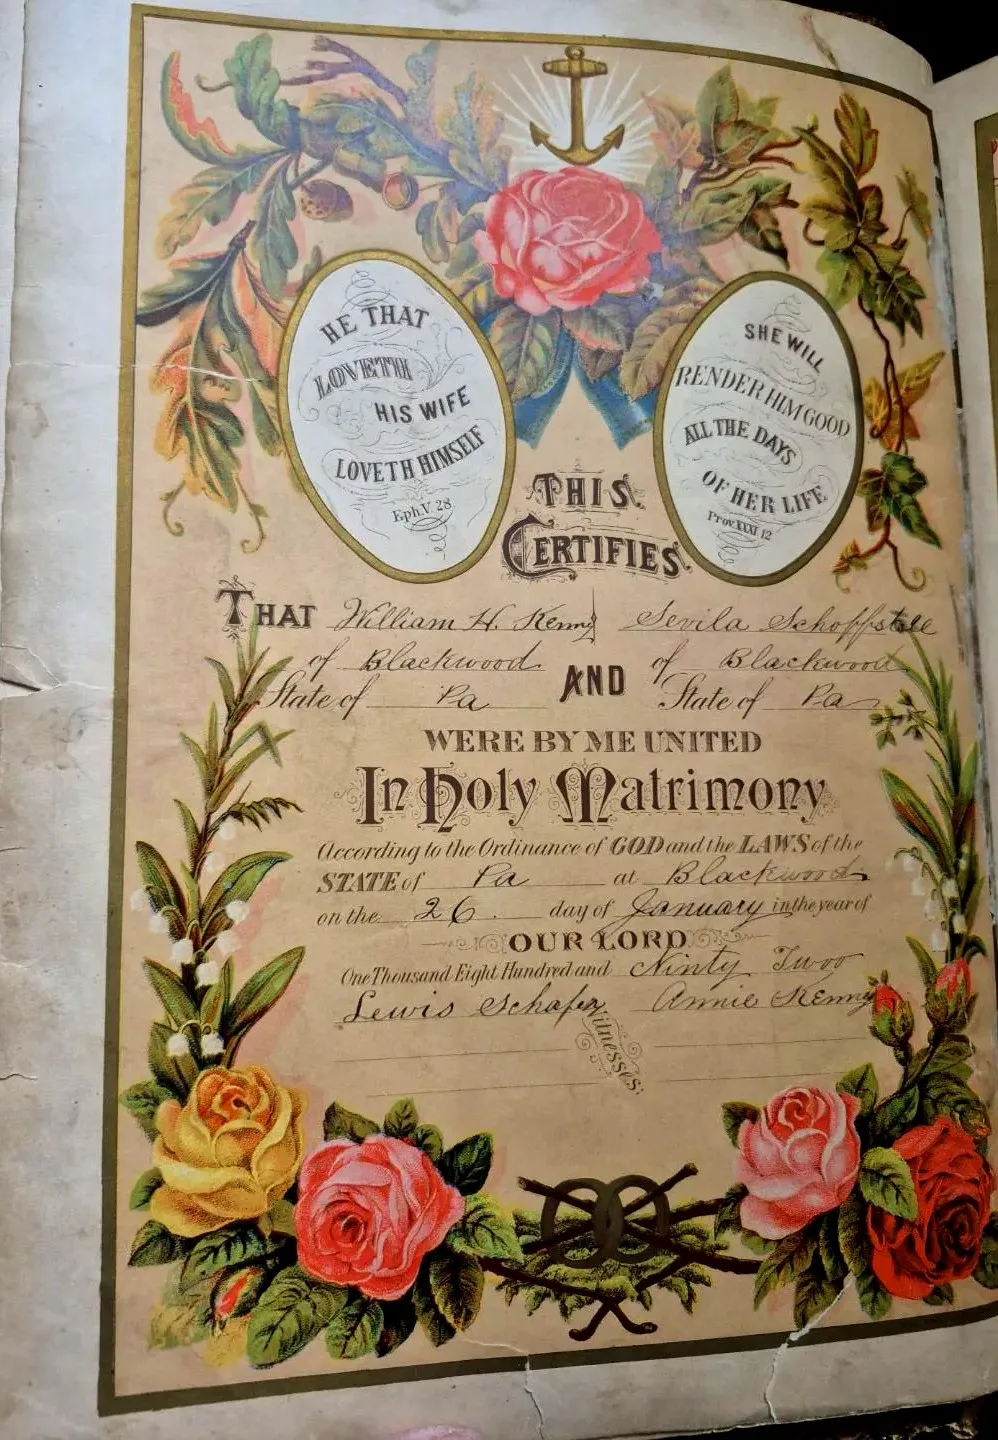 HE THAT
LOVETH
HIS WIFE
LOVETH HIMSELF
Eph.V. 28
SHE WILL
RENDER HIM GOOD
ALL THE DAYS
OF HER LIFE
Prov.XXXI 12
THIS
CERTIFIES
THAT William H. Kenny Sevila
of Blackwood AND of Blackwood
State of Pa State of Pa
WERE BY ME UNITED
In Holy Matrimony
According to the Ordinance of GOD and the LAWS of the
STATE of Pa at Blackwood
on the 26. day of January in the year of
OUR LORD
One Thousand Eight Hundred and Ninty Twoo
Lewis Annie Kenny
Witnesses: